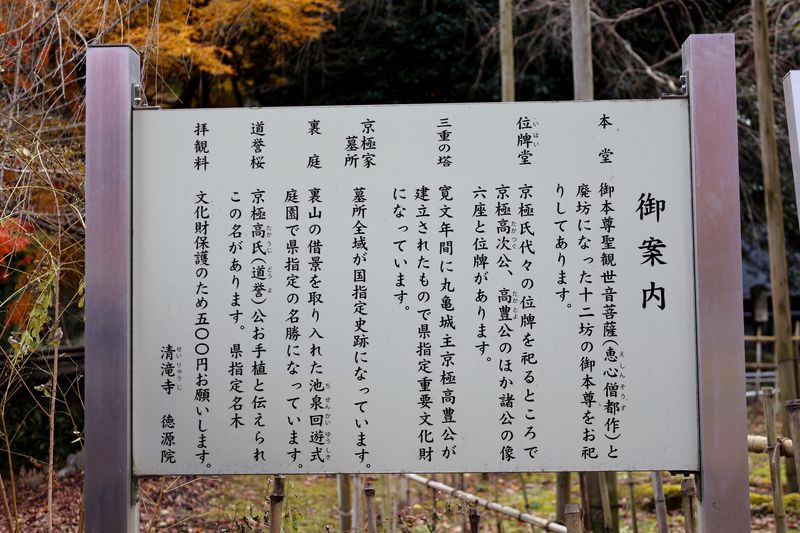 御案内
本堂 御本尊聖観世音菩薩(恵心僧都作)と
廃坊になった十二坊の御本尊をお祀
りしてあります。
位牌堂 京極氏代々の位牌を祀るところで
京極高次公、高豊公のほか諸公の像
六座と位牌があります。
三重の塔 寛文年間に丸亀城主京極高豊公が
建立されたもので県指定重要文化財
になっています。
京極家
墓所 墓所全域が国指定史跡になっています。
裏庭 裏山の借景を取り入れた池泉回遊式
庭園で県指定の名勝になっています。
道誉桜 京極高氏(道誉)公お手植と伝えられ
この名があります。県指定名木
拝観料 文化財保護のため五〇〇円お願いします。
清滝寺 徳源院